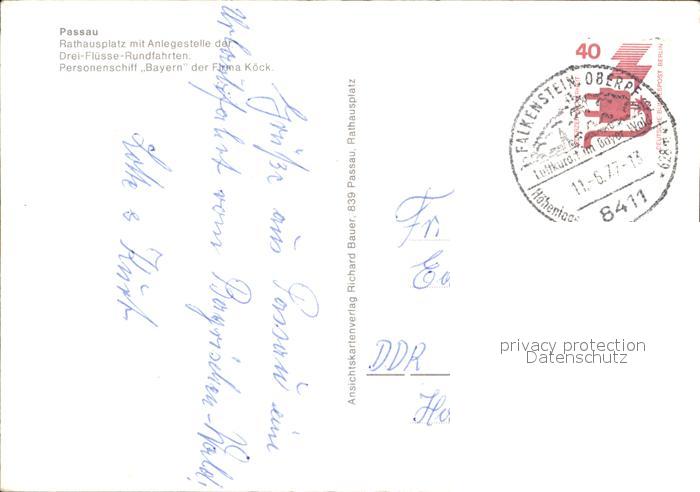 Passau
Rathausplatz mit Anlegestelle der
Drei-Flüsse-Rundfahrten.
Personenschiff „Bayern" der Firma Köck.
Grüße aus Passau eine
Urlaubsfahrt vom Bayrischen-Wald!
Lotte & Kurt
Ansichtskartenverlag Richard Bauer, 839 Passau, Rathausplatz
40
DEUTSCHE BUNDESPOST BERLIN
FALKENSTEIN, OBERPF
Luftkurort im Bayer. Wald
11.-6.77-13
Höhenlage
628 m
8411
Fr
DDR
privacy protection
Datenschutz